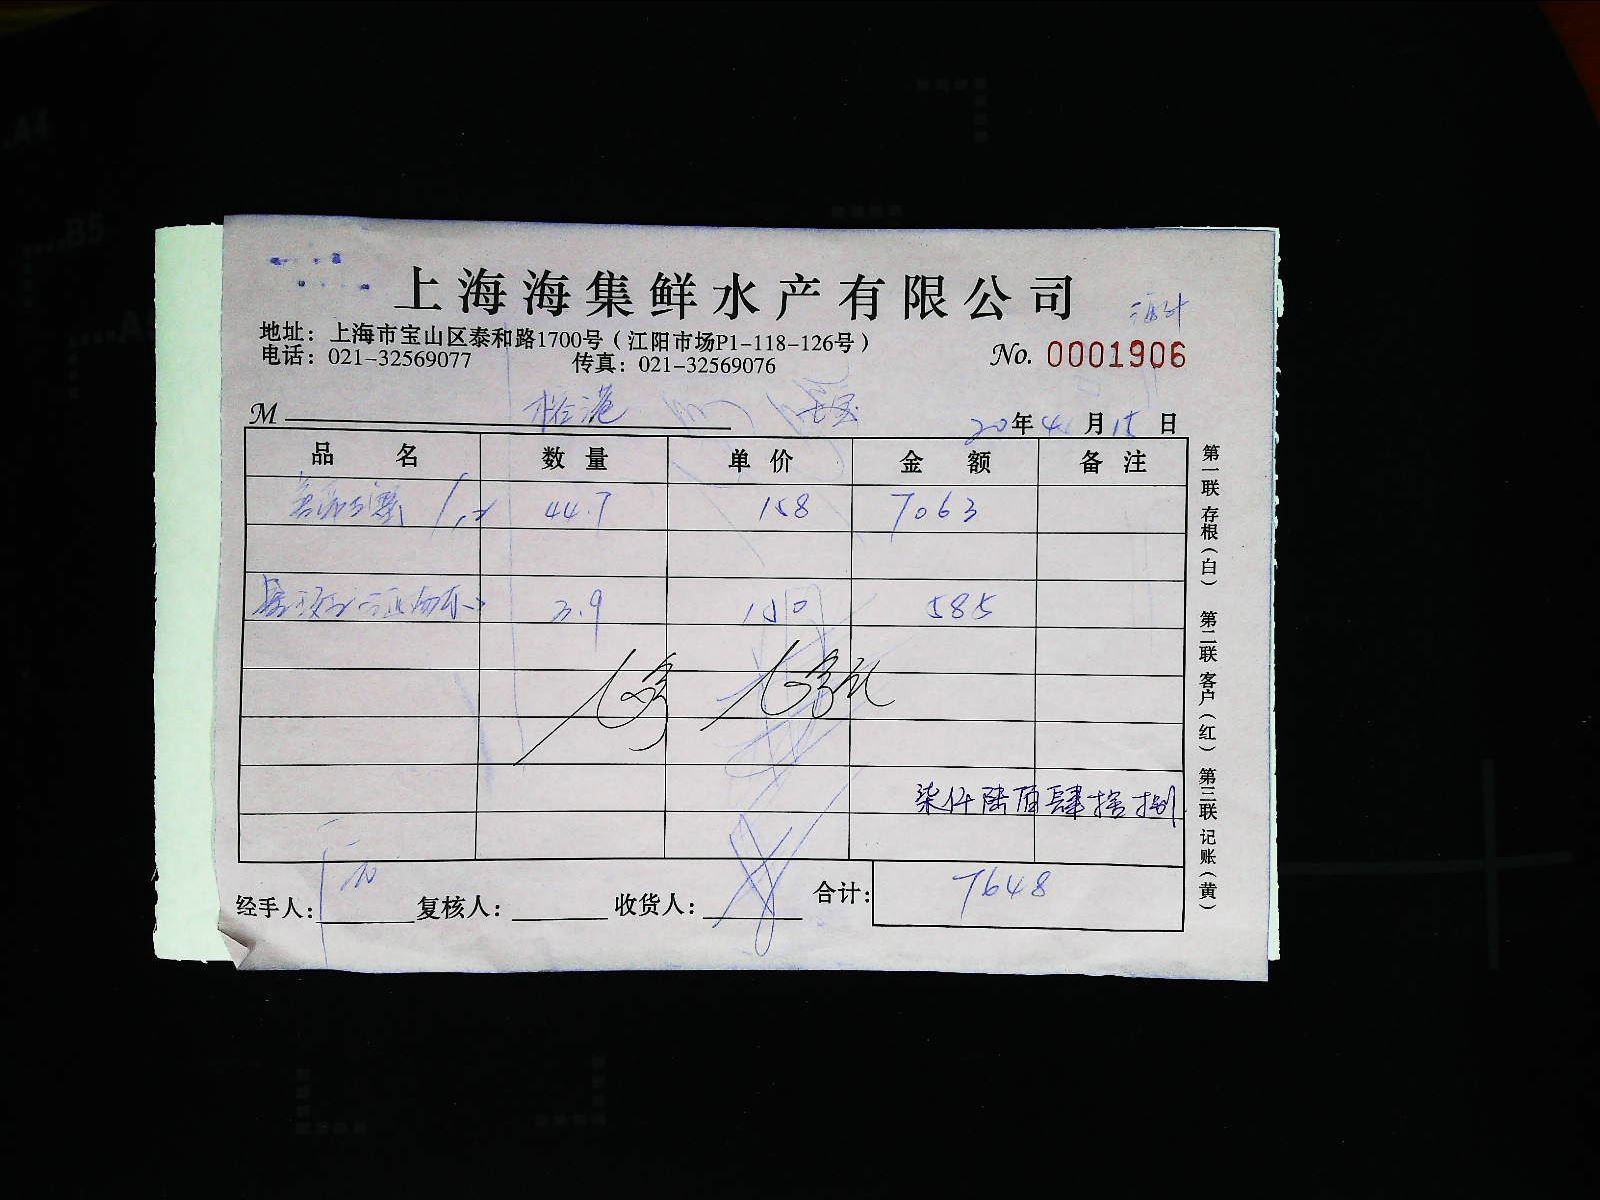 上海海集鲜水产有限公司
地址：上海市宝山区泰和路1700号（江阳市场P1-118-126号）
电话：021-32569077 传真：021-32569076
No. 0001906
M
20年4月15日
品 名 数 量 单 价 金 额 备 注
44.7 158 7063
3.9 150 585
柒仟陆佰肆拾捌
合计：7648
经手人： 复核人： 收货人：
第一联 存根（白） 第二联 客户（红） 第三联 记账（黄）